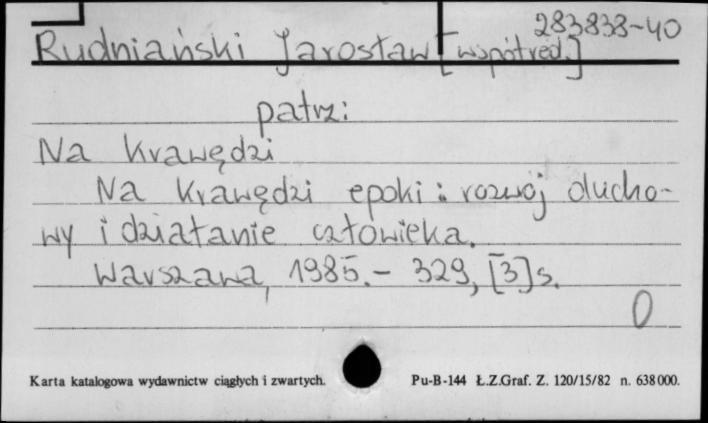 283838-40
Rudniański Jarosław [współred.]
patrz:
Na krawędzi
Na krawędzi epoki : rozwój ducho-
wy i działanie człowieka.
Warszawa, 1985.- 329, [3] s.
0
Karta katalogowa wydawnictw ciągłych i zwartych. Pu-B-144 Ł.Z.Graf. Z. 120/15/82 n. 638000.